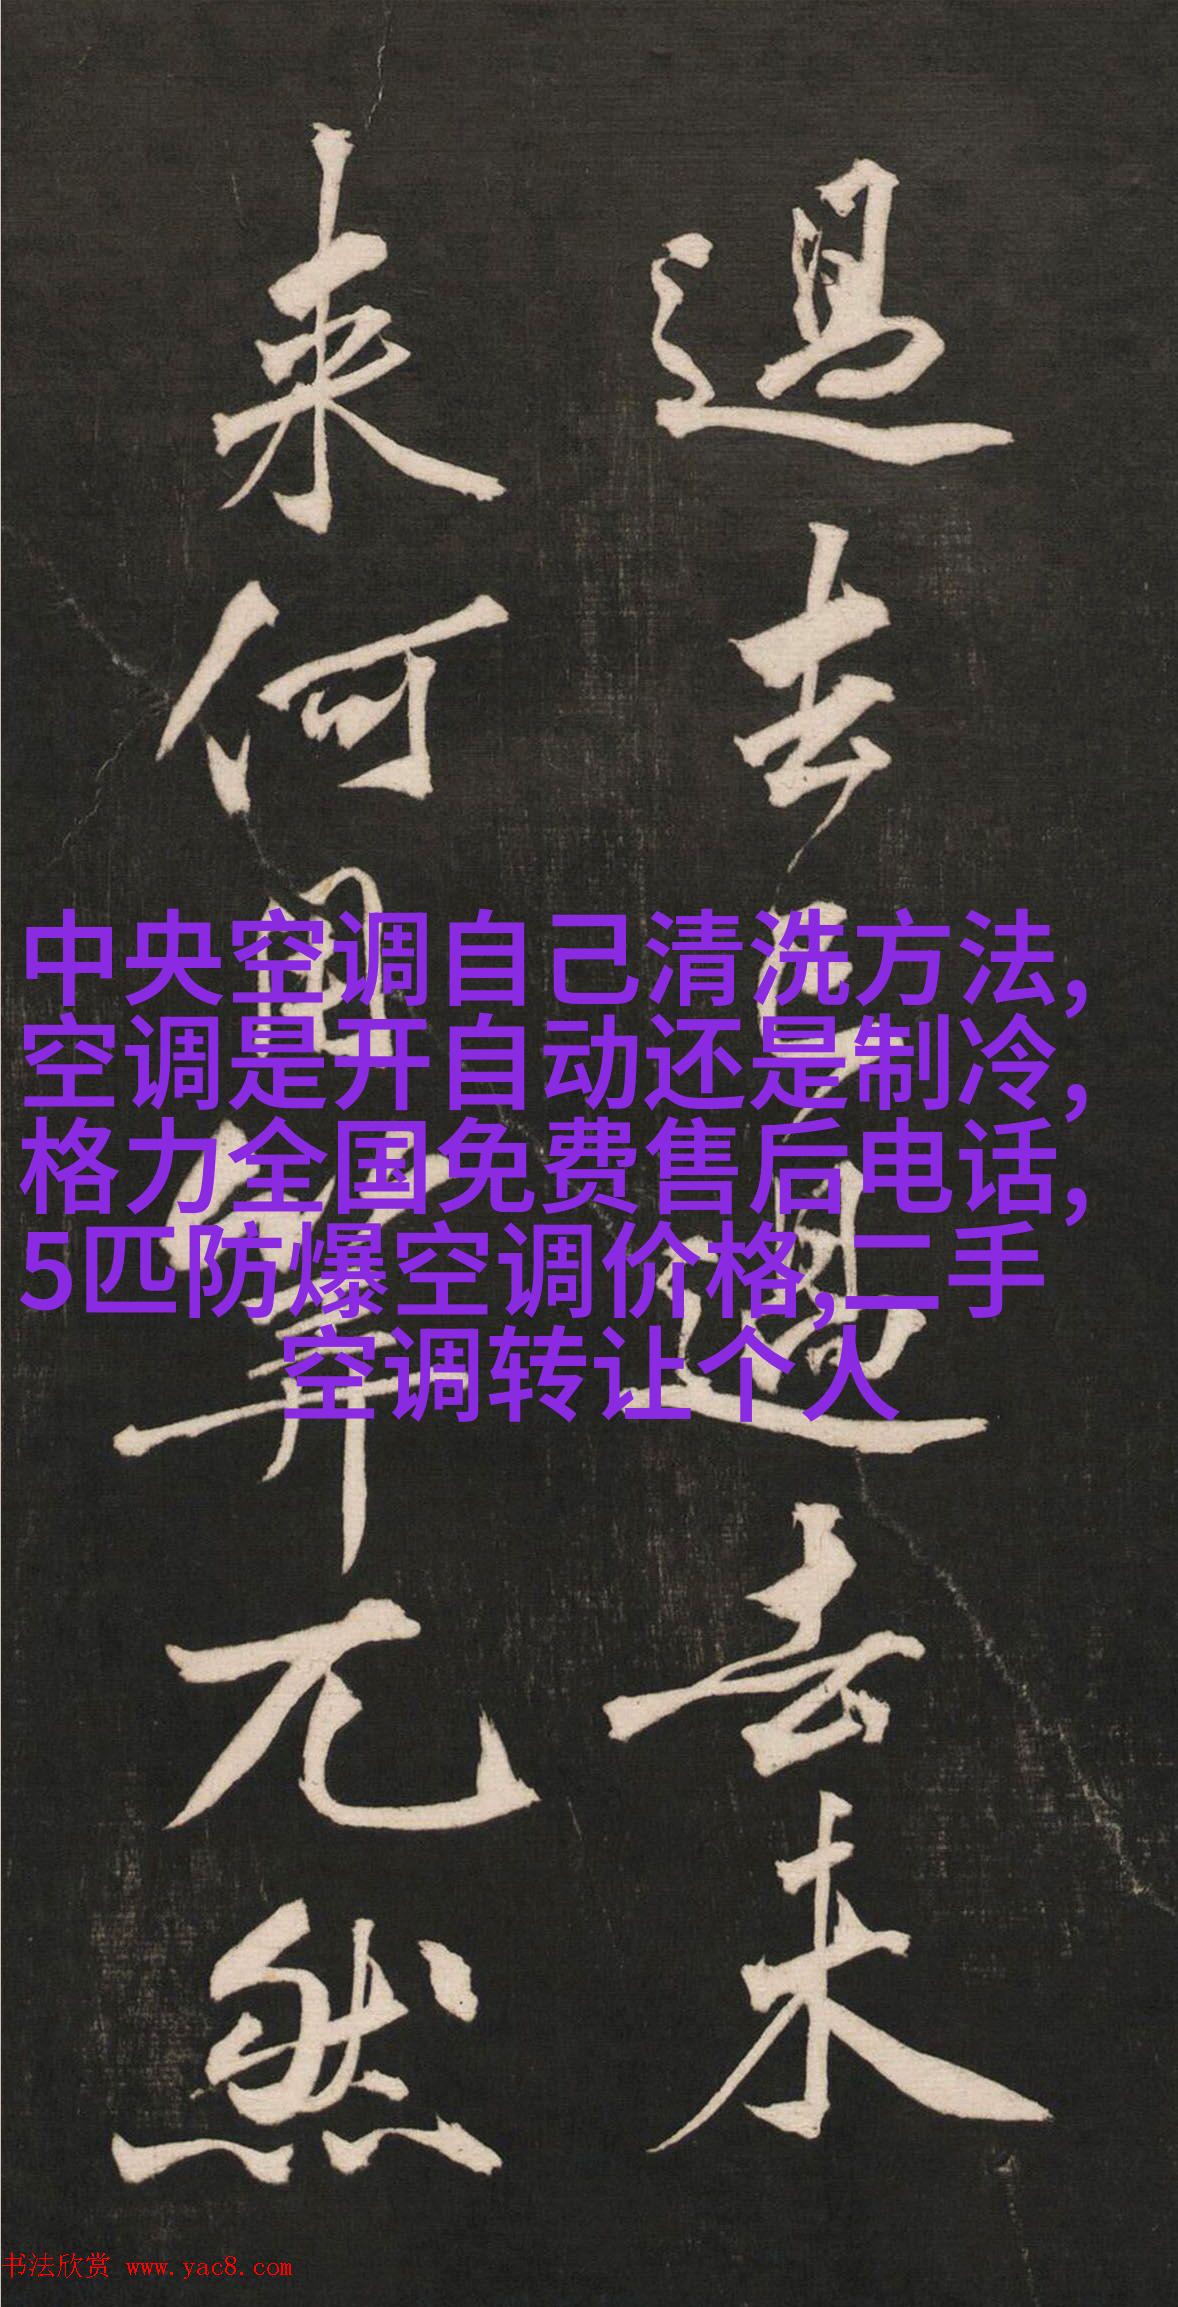 過去已過去未
来何用算兀然
中央空调自己清洗方法,
空调是开自动还是制冷,
格力全国免费售后电话,
5匹防爆空调价格,二手
空调转让个人
书法欣赏 www.yac8.com